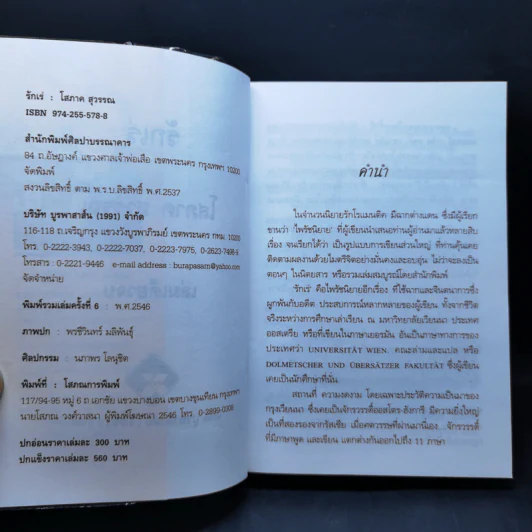 รักเร่ : โสภาค สุวรรณ
ISBN 974-255-578-8
สำนักพิมพ์ศิลปาบรรณาคาร
84 ถ.อัษฎางค์ แขวงศาลเจ้าพ่อเสือ เขตพระนคร กรุงเทพฯ 10200
จัดพิมพ์
สงวนลิขสิทธิ์ ตาม พ.ร.บ.ลิขสิทธิ์ พ.ศ.2537
บริษัท บูรพาสาส์น (1991) จำกัด
116-118 ถ.เจริญกรุง แขวงวังบูรพาภิรมย์ เขตพระนคร กทม. 10200
โทร. 0-2222-3943, 0-2222-7037, 0-2223-7975, 0-2623-7498-9
โทรสาร : 0-2221-9446 e-mail address : burapasarn@yahoo.com
จัดจำหน่าย
พิมพ์รวมเล่มครั้งที่ 6 : พ.ศ.2546
ภาพปก : พรชีวินทร์ มลิพันธุ์
ศิลปกรรม : นภาพร โลนุชิต
พิมพ์ที่ : โสภณการพิมพ์
117/94-95 หมู่ 6 ถ.เอกชัย แขวงบางบอน เขตบางขุนเทียน กรุงเทพฯ
นายโสภณ วงศ์วาสนา ผู้พิมพ์โฆษณา 2546 โทร. 0-2899-0006
ปกอ่อนราคาเล่มละ 300 บาท
ปกแข็งราคาเล่มละ 560 บาท
คำนำ
ในจำนวนนิยายรักโรแมนติค มีฉากต่างแดน ซึ่งมีผู้เรียก
ขานว่า 'ไพรัชนิยาย' ที่ผู้เขียนนำเสนอท่านผู้อ่านมาแล้วหลายสิบ
เรื่อง จนเรียกได้ว่า เป็นรูปแบบการเขียนส่วนใหญ่ ที่ท่านคุ้นเคย
ติดตามผลงานด้วยไมตรีจิตอย่างมั่นคงและอบอุ่น ไม่ว่าจะลงเป็น
ตอนๆ ในนิตยสาร หรือรวมเล่มสมบูรณ์โดยสำนักพิมพ์
'รักเร่' คือไพรัชนิยายอีกเรื่อง ที่ใช้ฉากและจินตนาการซึ่ง
ผูกพันกับอดีต ประสบการณ์หลากหลายของผู้เขียน ทั้งจากชีวิต
จริงระหว่างการศึกษาเล่าเรียน ณ มหาวิทยาลัยเวียนนา ประเทศ
ออสเตรีย หรือที่เขียนในภาษาเยอรมัน อันเป็นภาษาทางการของ
ประเทศว่า UNIVERSITÄT WIEN. คณะล่ามและแปล หรือ
DOLMETSCHER UND ÜBERSÄTZER FAKULTÄT ซึ่งผู้เขียน
เคยเป็นนักศึกษาที่นั่น
สถานที่ ความงดงาม โดยเฉพาะประวัติความเป็นมาของ
กรุงเวียนนา ซึ่งเคยเป็นจักรวรรดิ์ออสโตร-ฮังการี มีความยิ่งใหญ่
เป็นที่สองรองจากรัสเซีย เมื่อศตวรรษที่ผ่านมานี่เอง จักรวรรดิ์
ที่มีภาษาพูด และเขียน แตกต่างกันออกไปถึง 11 ภาษา